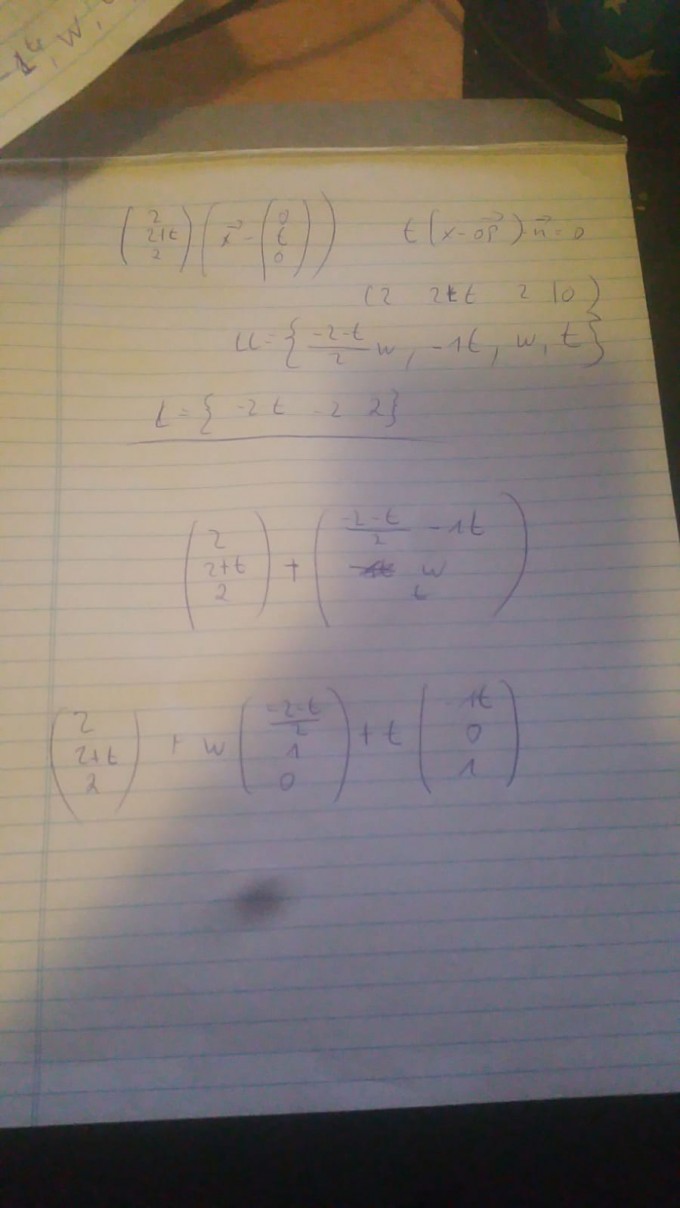 -1t, w,
(2 2+t 2) (x⃗ - (0 t 0)) t (x-op⃗)·n⃗=0
(2 2+t 2 |0)
U={(-2-t)/2 w, -1t, w, t}
L={ -2t -2 2}
(2 2+t 2) + ((-2-t)/2 -1t w t)
(2 2+t 2) + w ((-2-t)/2 1 0) + t (-1t 0 1)